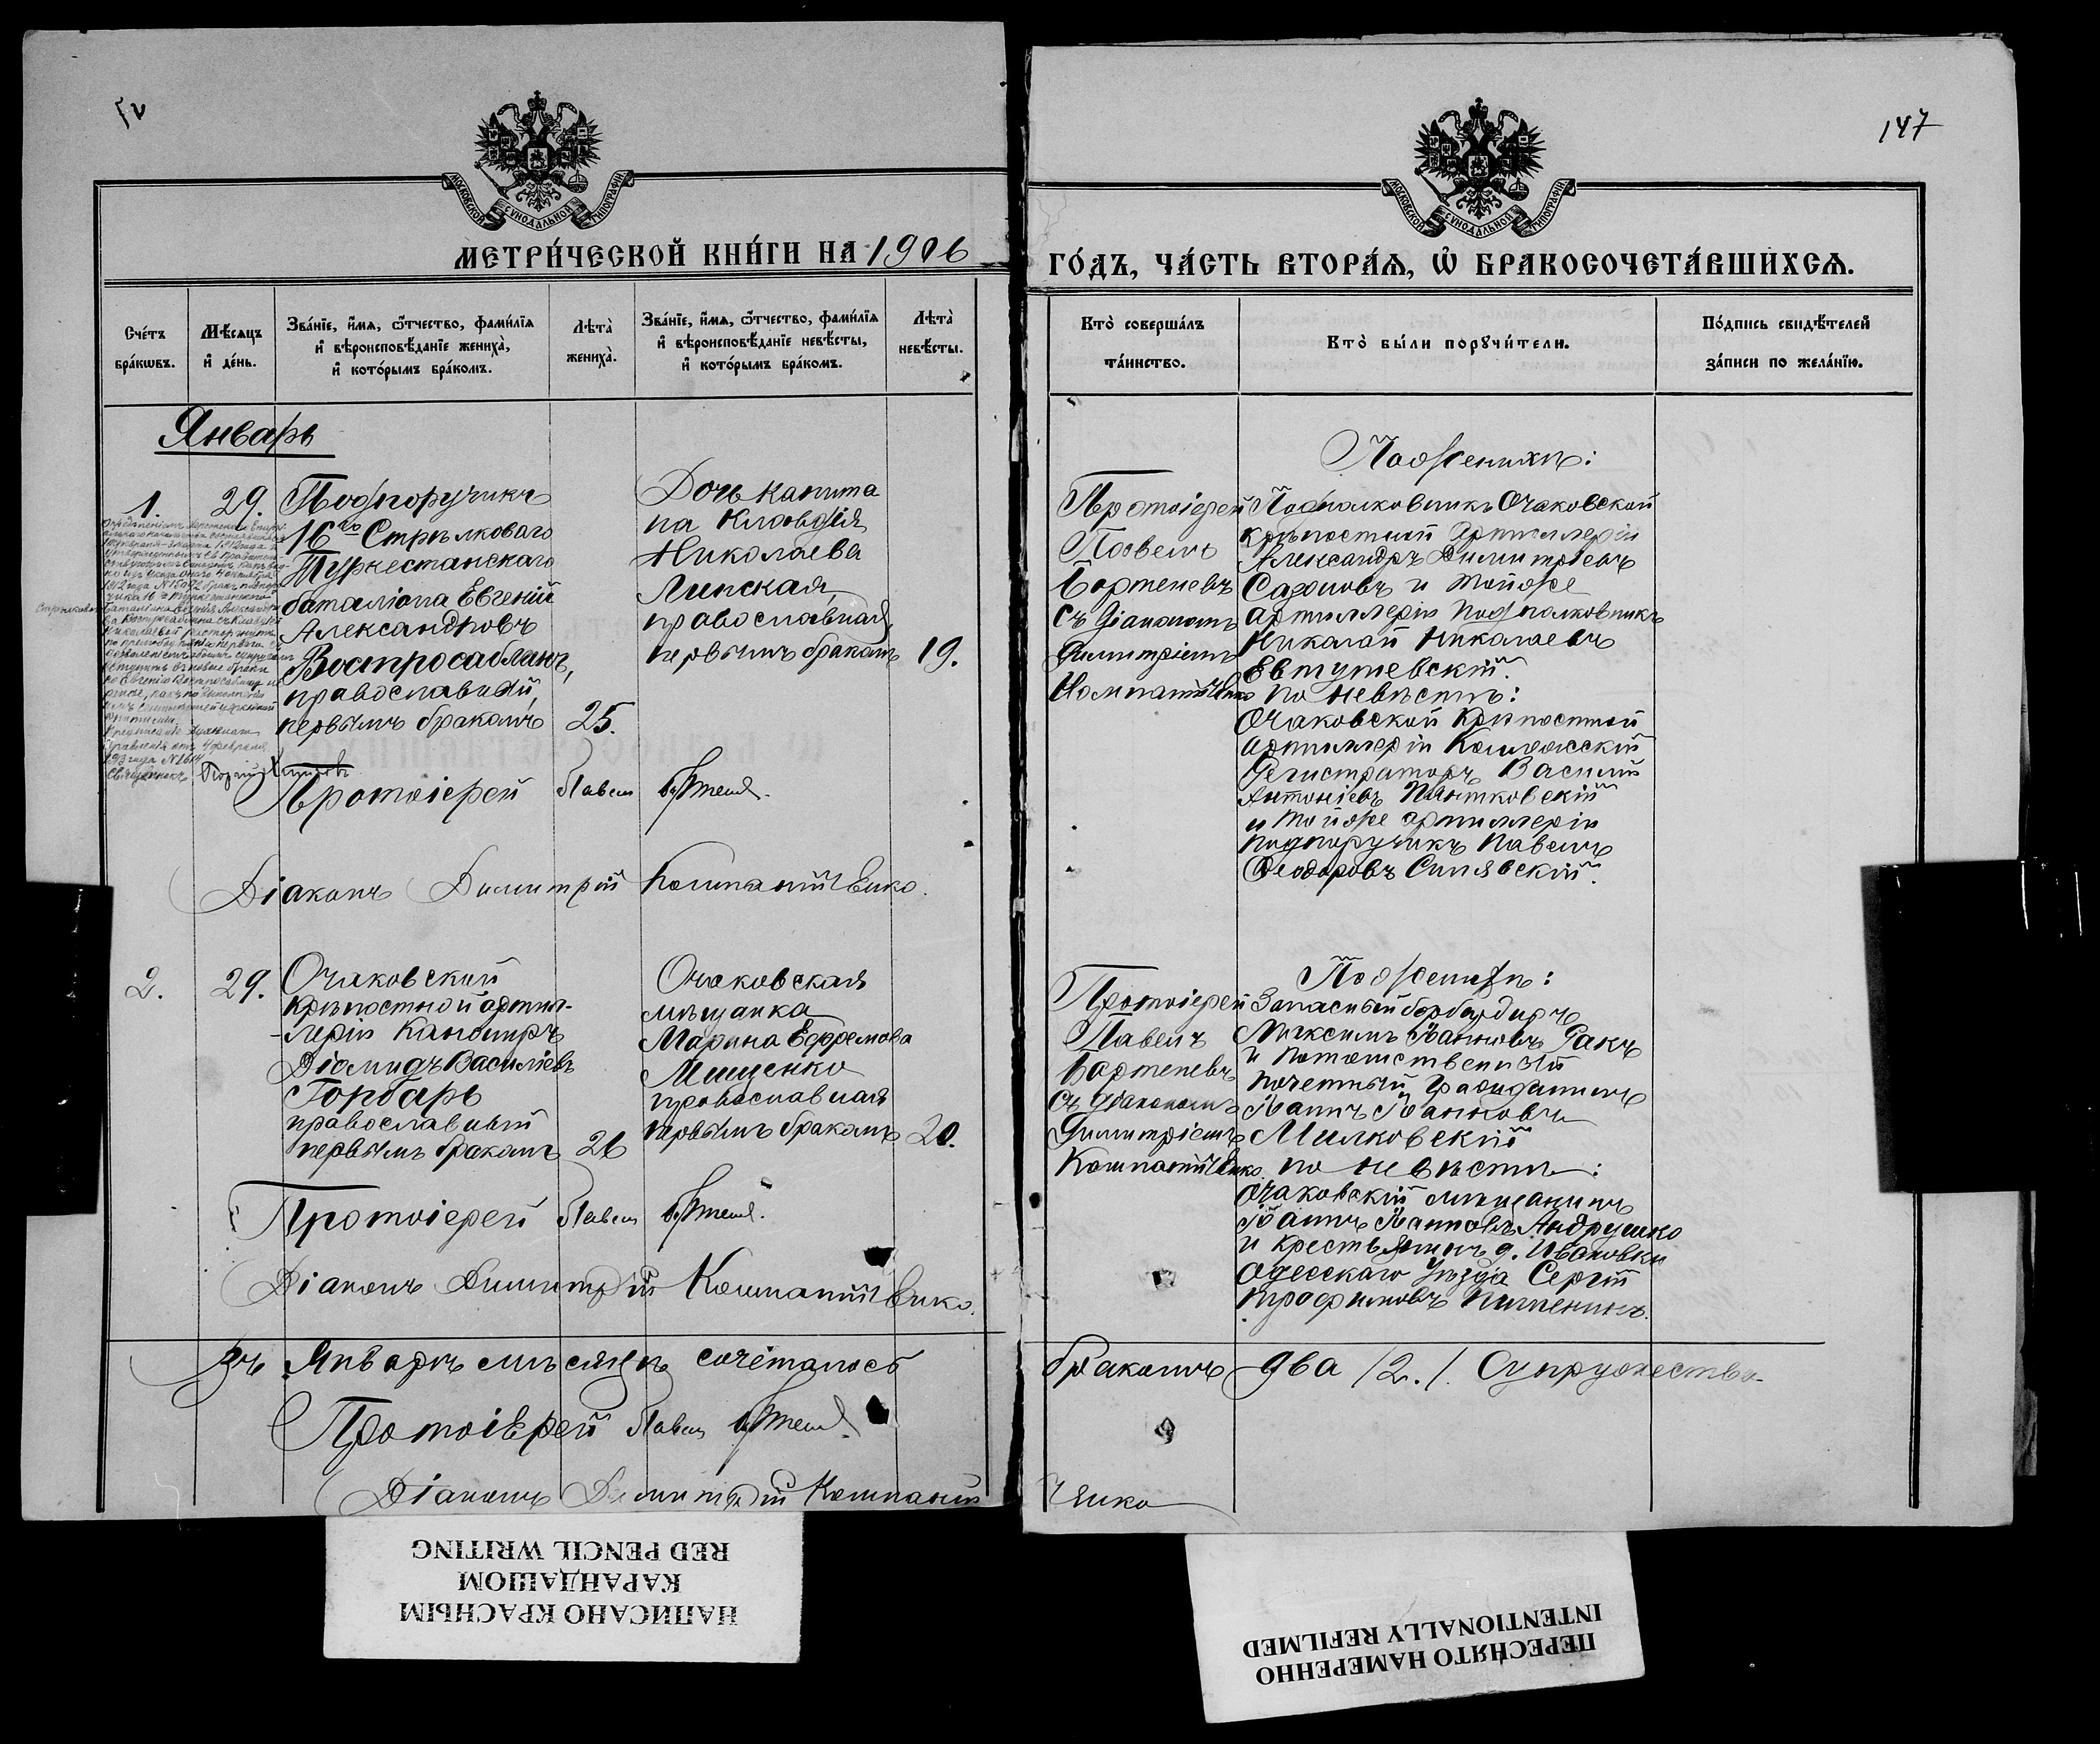 147
МОСКОВСКОЙ СУНОДАЛЬНОЙ ТИПОГРАФІИ
МОСКОВСКОЙ СУНОДАЛЬНОЙ ТИПОГРАФІИ
МЕТРИ́ЧЕСКОЙ КНИ́ГИ НА 1906
ГО́ДЪ, ЧА́СТЬ ВТОРА́Ѧ, Ѽ БРАКОСОЧЕТА́ВШИХСѦ.
Сче́тъ бра́кѡвъ.
Мѣ́сяцъ и҆ де́нь.
Зва́нїе, и҆́мѧ, ѻ҆́тчество, фами́лїѧ
и҆ вѣроисповѣ́данїе жениха̀,
и҆ кото́рымъ бра́комъ.
Лѣта̀ жениха̀.
Зва́нїе, и҆́мѧ, ѻ҆́тчество, фами́лїѧ
и҆ вѣроисповѣ́данїе невѣ́сты,
и҆ кото́рымъ бра́комъ.
Лѣта̀ невѣ́сты.
Кто̀ соверша́лъ та́инство.
Кто̀ бы́ли порꙋчи́тели.
По́дпись свидѣ́телей за́писи по жела́нїю.
Январь
1.
29.
Подпоручикъ
16го Стрѣлковаго
Туркестанскаго
баталіона Евгеній
Александровъ
Востросаблинъ,
православный,
первымъ бракомъ
25.
Дочь капита
на Клавдія
Николаева
Липская,
православная,
первымъ бракомъ
19.
Протоіерей
Павелъ
Бортеневъ
съ діакономъ
Димитріемъ
Компанійченко
По женихѣ:
Подполковникъ Очаковской
крѣпостной артиллеріи
Александръ Димитріевъ
Сазоновъ и той же
артиллеріи подполковникъ
Николай Николаевъ
Евтушевскій.
по невѣстѣ:
Очаковской крѣпостной
артиллеріи Коллежскій
Регистраторъ Василій
Антоніевъ Пянтковскій
и той же артиллеріи
подпоручикъ Павелъ
Ѳеодоровъ Синявскій.
Протоіерей Павелъ
Діаконъ Димитрій Компанійченко.
2.
29.
Очаковской
крѣпостной артил-
-леріи Канониръ
Діомидъ Василіевъ
Горбарь
православный
первымъ бракомъ
26
Очаковская
мѣщанка
Марина Ефремова
Мищенко
православная
первымъ бракомъ
20.
Протоіерей
Павелъ
Бортеневъ
съ діакономъ
Димитріемъ
Компанійченко
По женихѣ:
Запасный бомбардиръ
Максимъ Іоанновъ Гакъ
и потомственный
почетный гражданинъ
Іоаннъ Іоанновъ
Милковскій
по невѣстѣ:
Очаковскій мѣщанинъ
Іоаннъ Іоанновъ Андрушко
и крестьянинъ д. Ивановки
Одесскаго уѣзда Сергій
Трофимовъ Пименинъ.
Протоіерей Павелъ
Діаконъ Димитрій Компанійченко.
Въ Январѣ мѣсяцѣ сочеталось
бракомъ два /2./ Супружества
Протоіерей Павелъ
Діаконъ Димитрій Компаній
ченко
НАПИСАНО КРАСНЫМ
КАРАНДАШОМ
RED PENCIL WRITING
ПЕРЕСНЯТО НАМЕРЕННО
INTENTIONALLY REFILMED